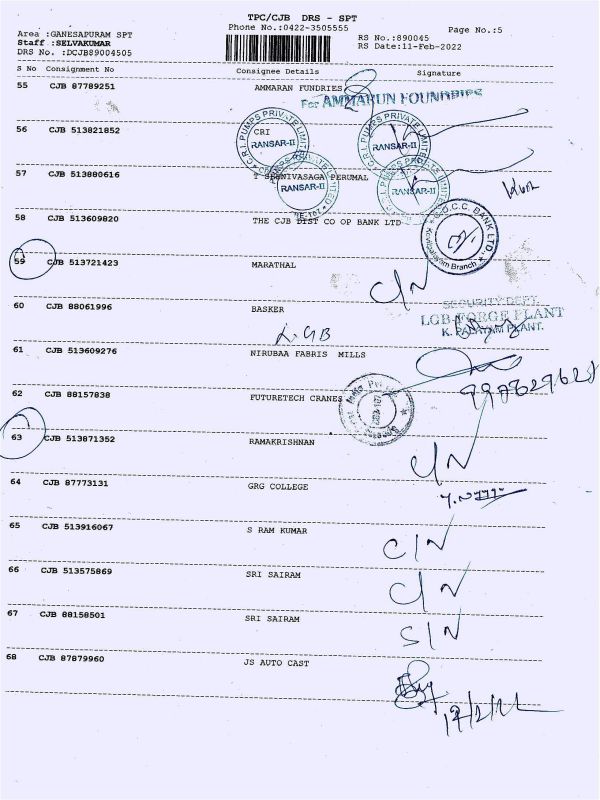 TPC/CJB DRS - SPT
Phone No.:0422-3505555
Page No.:5
Area :GANESAPURAM SPT
Staff :SELVAKUMAR
DRS No. :DCJB89004505
RS No.:890045
RS Date:11-Feb-2022
S No Consignment No Consignee Details Signature
55 CJB 87789251 AMMARAN FUNDRIES
For AMMARUN FOUNDRIES
56 CJB 513821852 CRI
C.R.I. PUMPS PRIVATE LIMITED
RANSAR-II
C.R.I. PUMPS PRIVATE LIMITED
RANSAR-II
57 CJB 513880616
RANSAR-II
RANSAR-II
58 CJB 513609820 THE CJB DIST CO OP BANK LTD
C.C. BANK LTD
Branch
59 CJB 513721423 MARATHAL
C/N
60 CJB 88061996 BASKER
SECURITY DEPT.
LGB-FORGE PLANT
PLANT.
LGB
61 CJB 513609276 NIRUBAA FABRIS MILLS
62 CJB 88157838 FUTURETECH CRANES
63 CJB 513871352 RAMAKRISHNAN
C/N
64 CJB 87773131 GRG COLLEGE
65 CJB 513916067 S RAM KUMAR
C/N
66 CJB 513575869 SRI SAIRAM
C/N
67 CJB 88158501 SRI SAIRAM
S/N
68 CJB 87879960 JS AUTO CAST